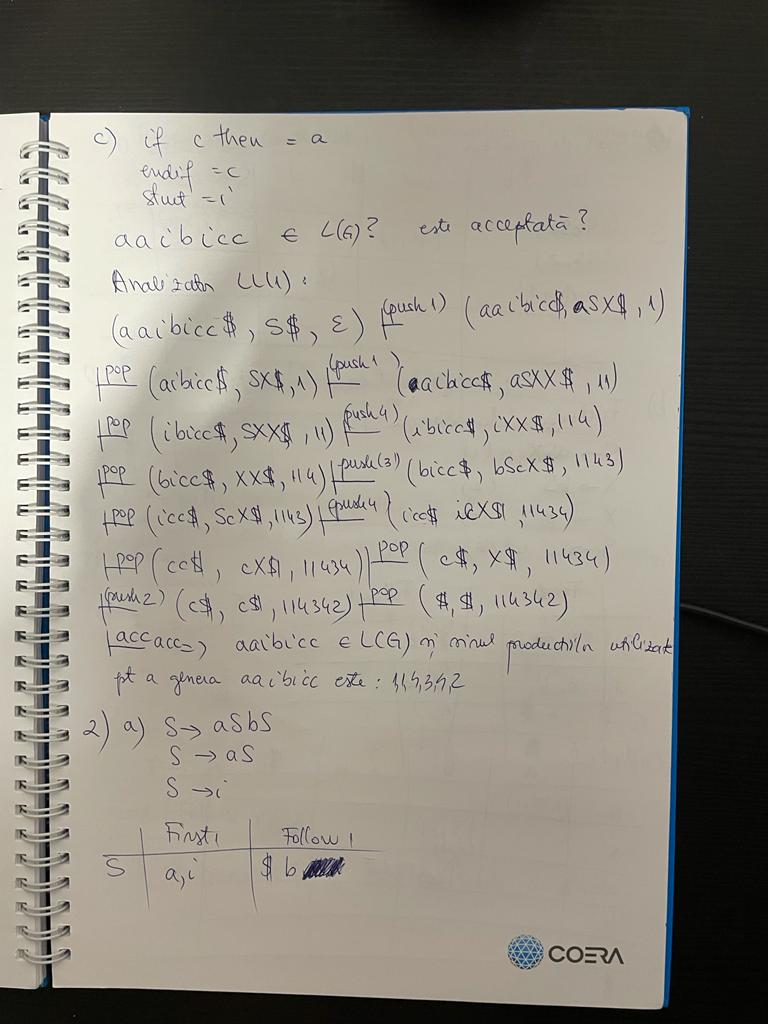 c) if c then = a
endif = c
stmt = i
aaibicc ∈ L(G)? este acceptată?
Analizator LL(1):
(aaibicc$, S$, ε) |push 1) (aaibicc$, aSX$, 1)
|pop (aibicc$, SX$, 1) |(push 1) (aaibicc$, aSXX$, 11)
|pop (ibicc$, SXX$, 11) |(push 4) (ibicc$, iXX$, 114)
|pop (bicc$, XX$, 114) |push(3) (bicc$, bScX$, 1143)
|pop (icc$, ScX$, 1143) |(push 4 (icc$ icX$, 11434)
|pop (cc$, cX$, 11434) |pop (c$, X$, 11434)
|push 2) (c$, c$, 114342) |pop ($, $, 114342)
|acc acc => aaibicc ∈ L(G) și șirul producțiilor utilizate
pt a genera aaibicc este: 1,1,4,3,4,2
2) a) S → aSbS
S → aS
S → i
First1 Follow1
S a, i $ b
COERA